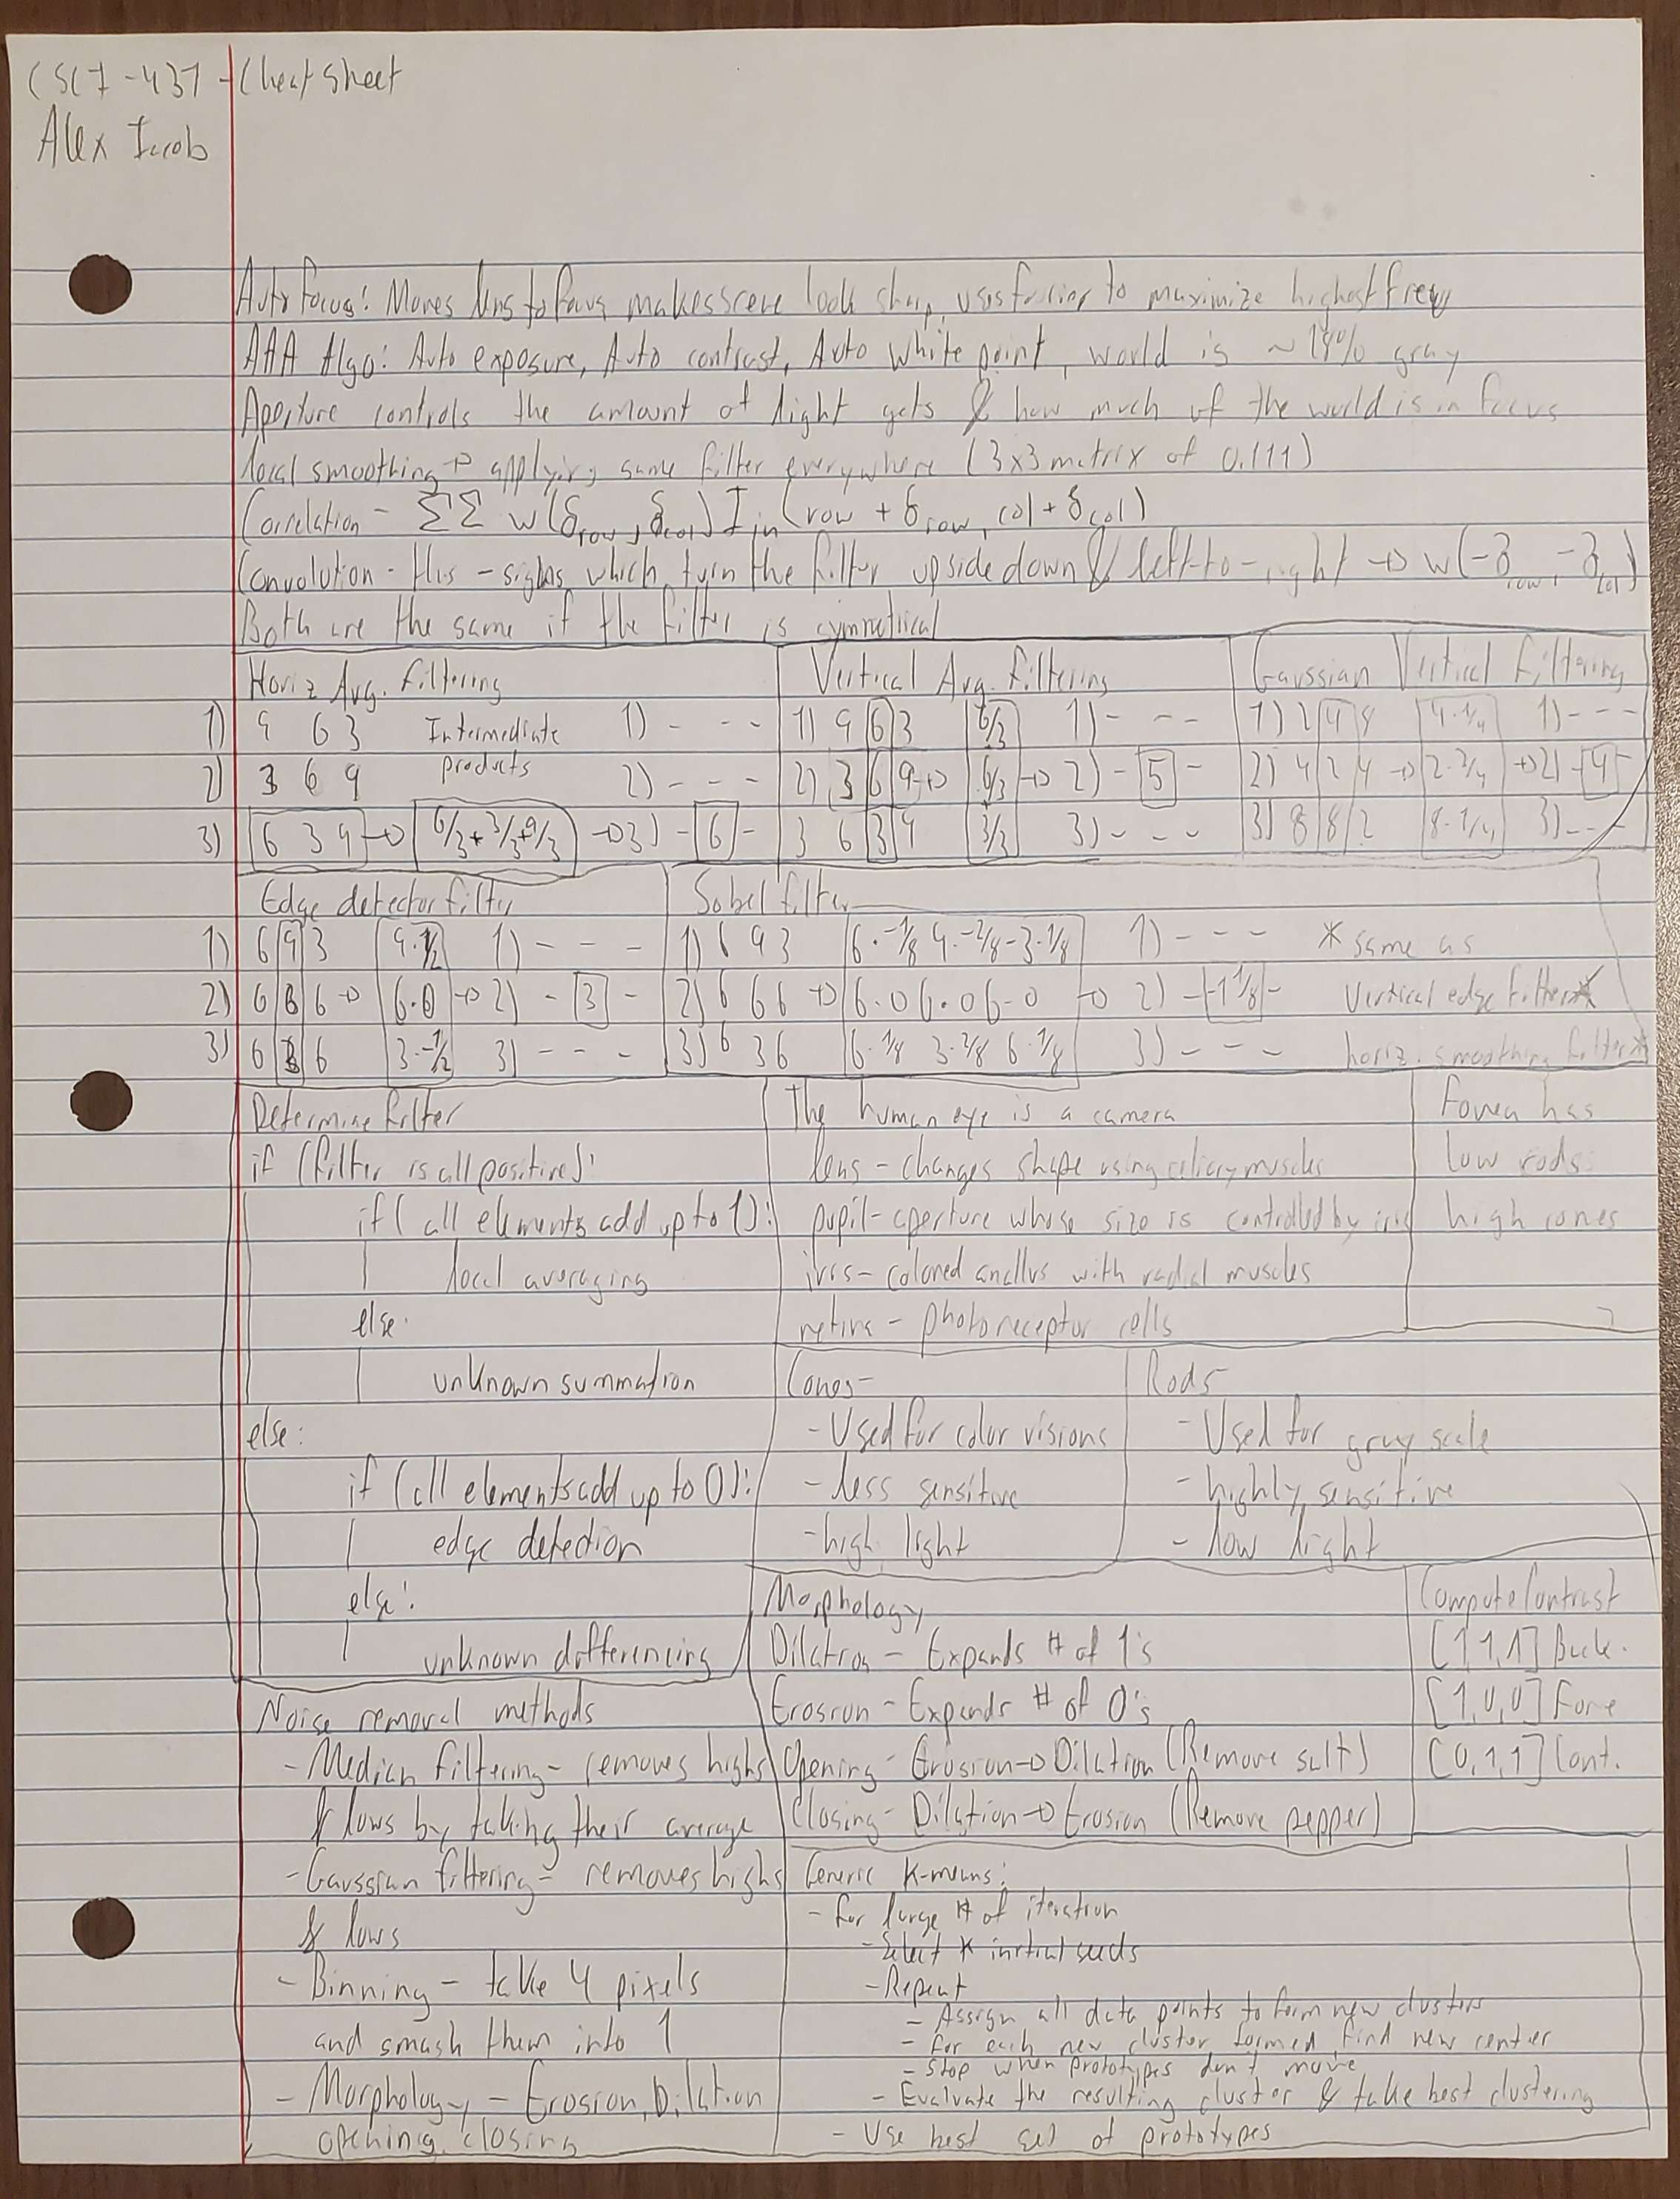 CSCI-437 - Cheat Sheet
Alex Iacob
Auto focus: Moves lens to focus, makes scene look sharp, uses fourier to maximize highest freq
AAA Algo: Auto exposure, Auto contrast, Auto white point, world is ~18% gray
Aperture controls the amount of light gets & how much of the world is in focus
local smoothing → applying same filter everywhere (3x3 matrix of 0.111)
Correlation - ΣΣ w(δrow, δcol) Iin(row + δrow, col + δcol)
Convolution - Has - signs which turn the filter upside down & left-to-right → w(-δrow, -δcol)
Both are the same if the filter is symmetrical
Horiz Avg. Filtering
1) 9 6 3 Intermediate 1) - - -
2) 3 6 9 products 2) - - -
3) 6 3 9 → 6/3 + 3/3 + 9/3 → 3) - 6 -
Vertical Avg. Filtering
1) 9 6 3 6/3 1) - - -
2) 3 6 9 → 6/3 → 2) - 5 -
3 6 3 9 3/3 3) - - -
Gaussian Vertical Filtering
1) 2 4 8 4·1/4 1) - - -
2) 4 2 4 → 2·2/4 → 2) - 4 -
3) 8 8 2 8·1/4 3) - - -
Edge detector filter
1) 6 9 3 9·1/2 1) - - -
2) 6 6 6 → 6·0 → 2) - 3 -
3) 6 3 6 3·-1/2 3) - - -
Sobel filter
1) 6 9 3 6·-1/8 9·-2/8 -3·1/8 1) - - - * same as
2) 6 6 6 → 6·0 6·0 6·0 → 2) - -1 1/8 - Vertical edge filter *
3) 6 3 6 6·1/8 3·2/8 6·1/8 3) - - - horiz. smoothing filter *
Determine filter
if (filter is all positive):
if (all elements add up to 1):
local averaging
else:
unknown summation
else:
if (all elements add up to 0):
edge detection
else:
unknown differencing
The human eye is a camera
lens - changes shape using ciliary muscles
pupil - aperture whose size is controlled by iris
iris - colored anullus with radial muscles
retina - photoreceptor cells
Fovea has
low rods
high cones
Cones -
- Used for color visions
- less sensitive
- high light
Rods
- Used for gray scale
- highly sensitive
- low light
Morphology
Dilation - Expands # of 1's
Erosion - Expands # of 0's
Opening - Erosion → Dilation (Remove salt)
Closing - Dilation → Erosion (Remove pepper)
Compute Contrast
[1,1,1] Back.
[1,0,0] Fore
[0,1,1] Cont.
Noise removal methods
- Median filtering - removes highs
& lows by taking their average
- Gaussian filtering - removes highs
& lows
- Binning - take 4 pixels
and smash them into 1
- Morphology - Erosion, Dilation
opening, closing
Generic K-means:
- for large # of iteration
- Select K initial seeds
- Repeat
- Assign all data points to form new clusters
- for each new cluster formed find new center
- Stop when prototypes don't move
- Evaluate the resulting cluster & take best clustering
- Use best set of prototypes